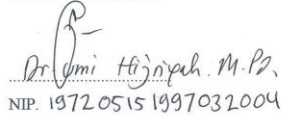 Dr. Umi Hijriyah. M.Pd.
NIP. 197205151997032004